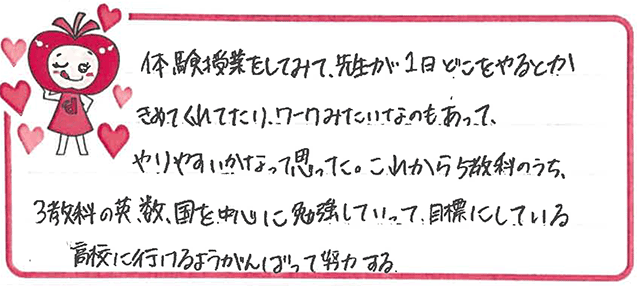 体験授業をしてみて、先生が1日どこをやるとか
きめてくれてたり、ワークみたいなのもあって、
やりやすいかなって思ってた。これから5教科のうち、
3教科の英、数、国を中心に勉強していって、目標にしている
高校に行けるようがんばって努力する。